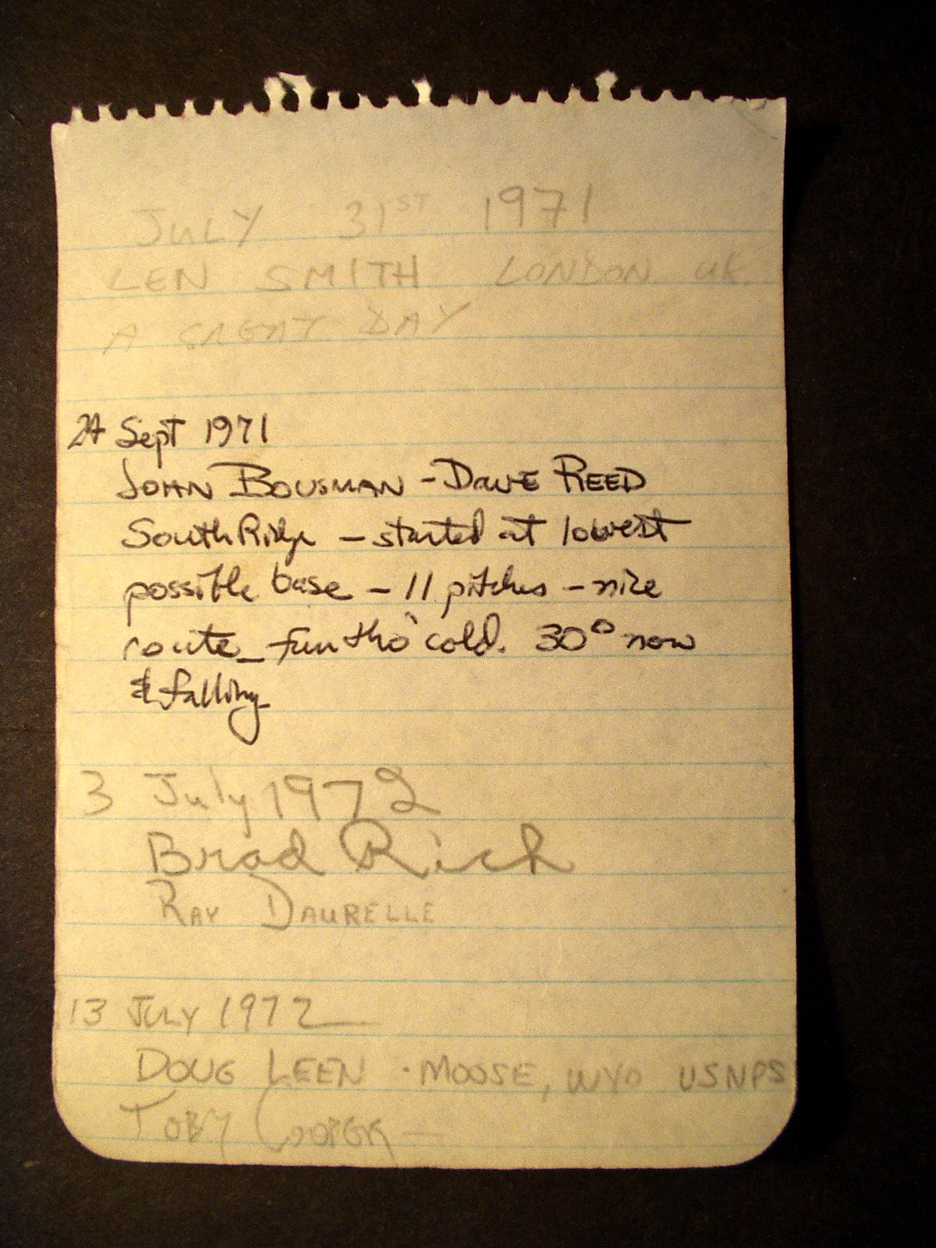 JULY 31ST 1971
LEN SMITH LONDON UK.
A GREAT DAY
24 Sept 1971
JOHN BOUSMAN - DAVE REED
South Ridge - started at lowest
possible base - 11 pitches - nice
route - fun tho' cold. 30° now
& falling
3 July 1972
Brad Rich
RAY DAURELLE
13 JULY 1972
DOUG LEEN · MOOSE, WYO USNPS
TOBY COOPER -